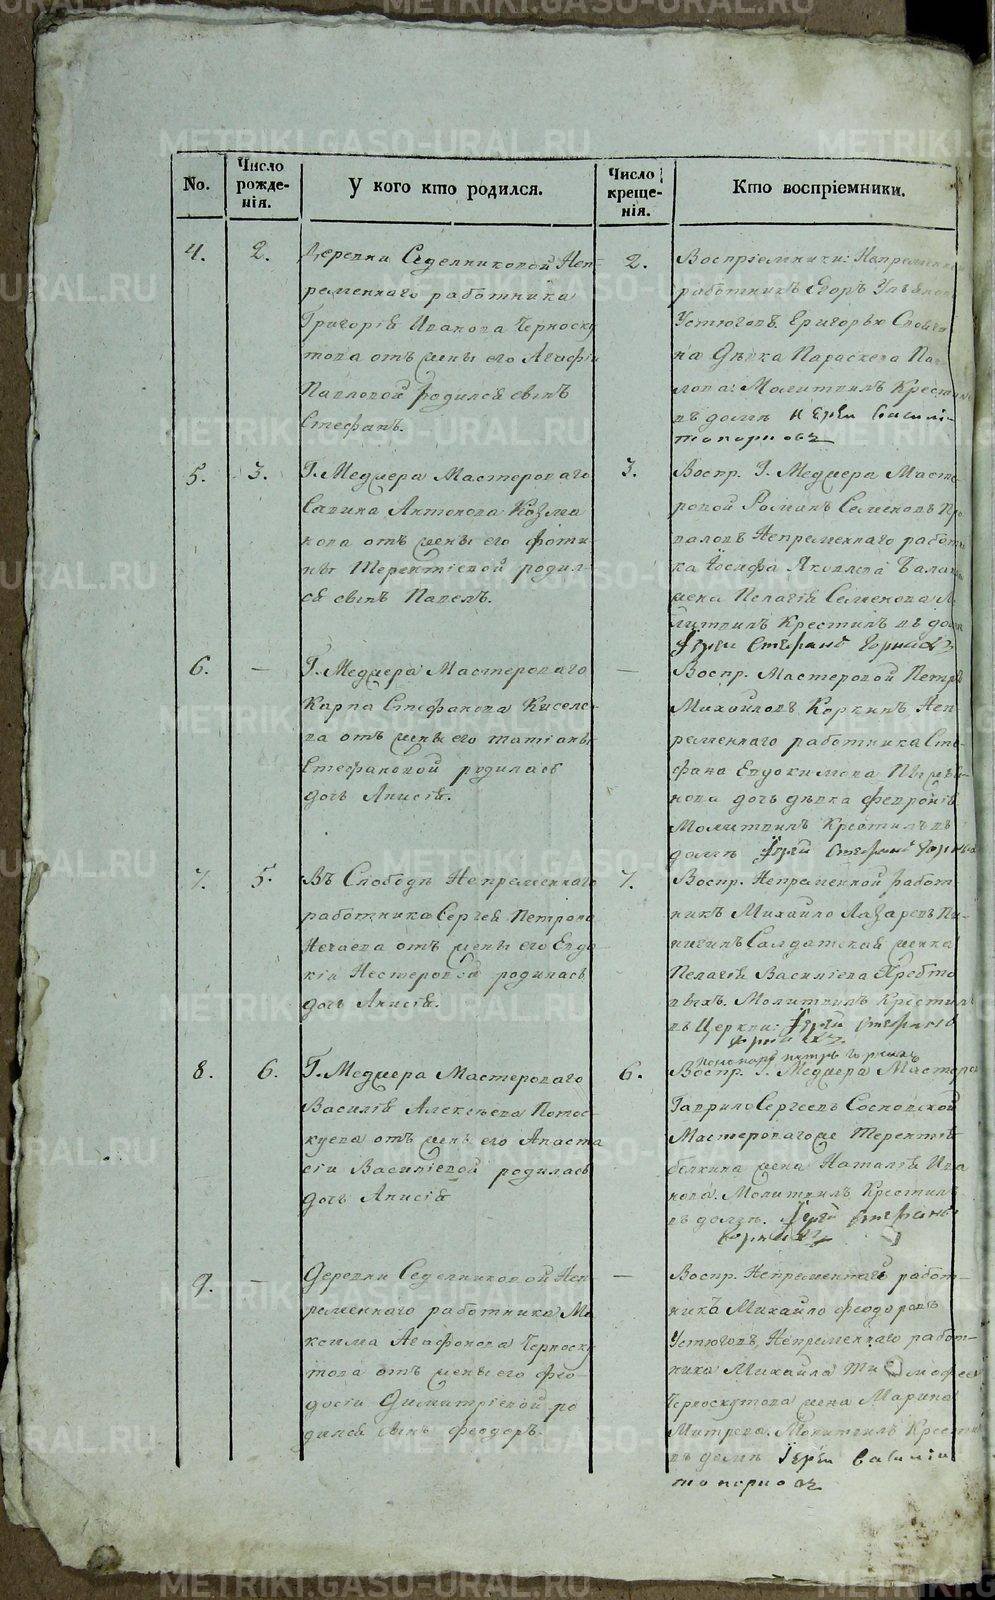 METRIKI.GASO-URAL.RU
No.
Число рожде-нія.
У кого кто родился.
Число креще-нія.
Кто воспріемники.
4. 2.
Деревни Седелниковой Неп-
ременнаго работника
Григорія Иванова Черноску
това отъ жены его Агафіи
Павловой родился сынъ
Стефанъ.
2.
Воспріемники: Непременной
работникъ Егоръ Ульянов
Устюговъ
дѣвка Параскева Пав
лова: Молитвилъ Крестилъ
въ домѣ Іерей Василій
Топорковъ
5. 3.
Г. Меджера Мастероваго
Савина Антонова Козма
кова отъ жены его Фоти
ны Терентіевой родил-
ся сынъ Павелъ.
3.
Воспр. Г. Меджера Масте
ровой Романъ Семеновъ
Непременнаго работни
ка Іосифа Яковлева
жена Пелагія Семенова Мо
литвилъ Крестилъ въ домѣ
Іерей Стефанъ
6. —
Г. Меджера Мастероваго
Карпа Стефанова Киселе
ва отъ жены его Татіаны
Стефановой родилась
дочь Анисія.
—
Воспр. Мастеровой Петръ
Михайловъ Коркинъ Неп
ременнаго работника Сте-
фана Евдокимова
нова дочь дѣвка Февронія
Молитвилъ Крестилъ въ
домѣ Іерей Стефанъ
7. 5.
Въ Слободѣ Непременнаго
работника Сергея Петрова
Нечаева отъ жены его Евдо
кіи Нестеровой родилась
дочь Анисія.
7.
Воспр. Непременной работ
никъ Михайло Лазаревъ Пи-
нигинъ Салдатская женка
Пелагія Василіева Хребто
выхъ. Молитвилъ Крестилъ
въ Церкви: Іерей Стефанъ
Пономарь Петръ
8. 6.
Г. Меджера Мастероваго
Василія Алексѣева Потос
куева отъ жены его Анаста
сіи Василіевой родилась
дочь Анисія
6.
Воспр. Г. Меджера Мастеров
Гаврило Сергеевъ Сосновской
Мастероваго же Терентія
Белкина жена Наталія Ива
нова. Молитвилъ Крестилъ
въ домѣ. Іерей Стефанъ
9. —
Деревни Седелниковой Неп
ременнаго работника Ма
ксима Агафонова Черноску
това отъ жены его Фео-
досіи Димитріевой ро
дился сынъ Феодоръ.
—
Воспр. Непременнаго работ-
никъ Михайло Феодоровъ
Устюговъ, Непременнаго работ-
ника Михайла Тимофеева
Черноскутова жена Марина
Митрева. Молитвилъ Крестилъ
въ домѣ Іерей Василій
Топорковъ